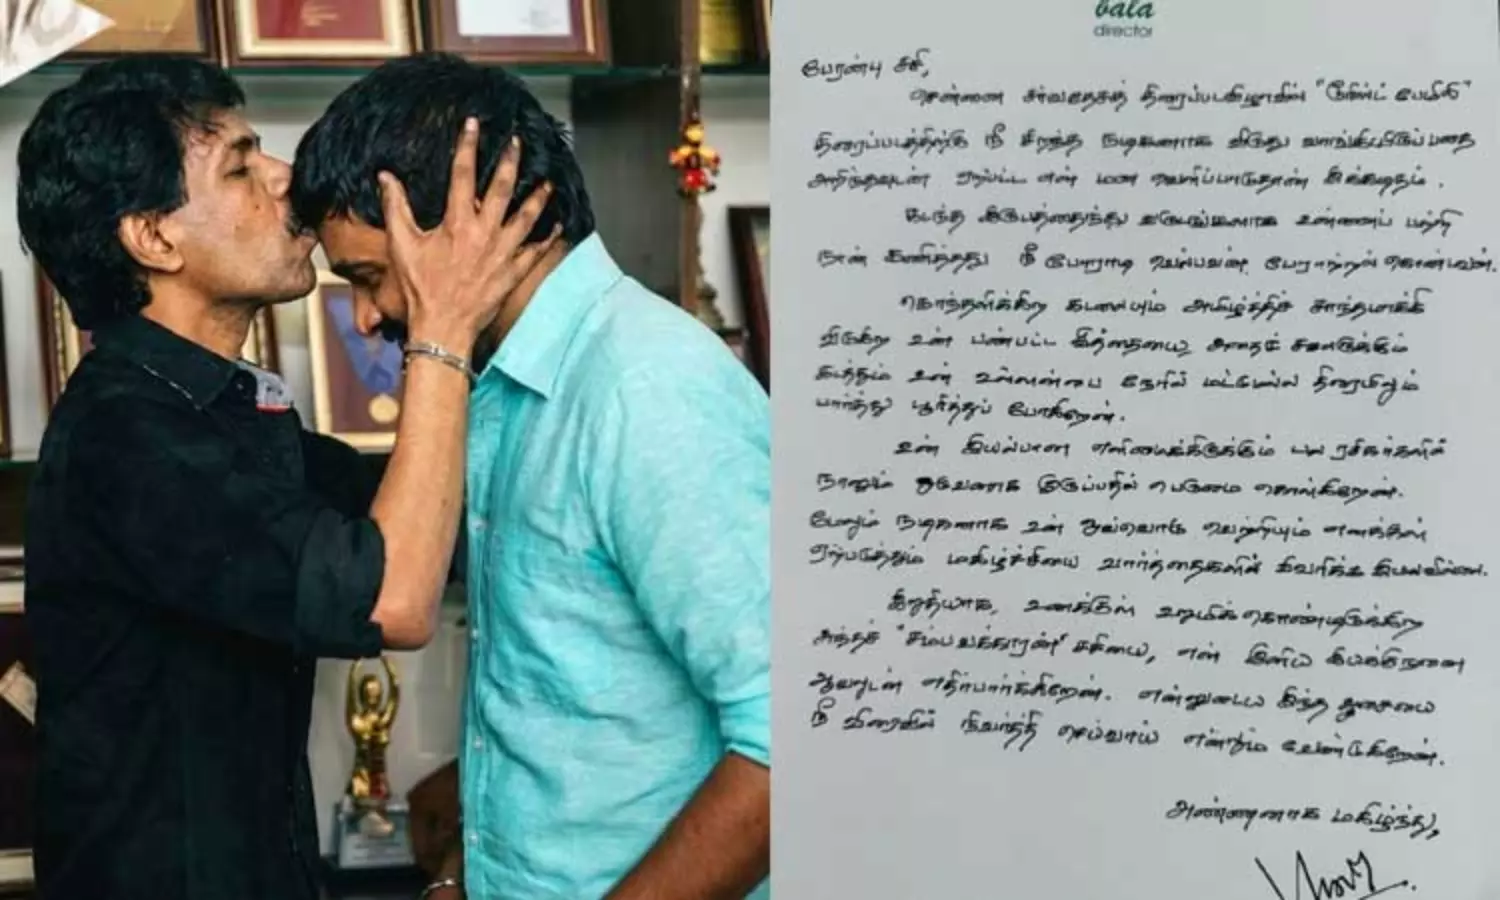 bala
director
பேரன்பு சசி,
சென்னை சர்வதேசத் திரைப்படவிழாவில் "டூரிஸ்ட் பேமிலி"
திரைப்படத்திற்கு நீ சிறந்த நடிகனாக விருது வாங்கியிருப்பதை
அறிந்தவுடன் ஏற்பட்ட என் மன வெளிப்பாடுதான் இக்கடிதம்.
கடந்த இருபத்தைந்து வருடங்களாக உன்னைப் பற்றி
நான் கணித்தது நீ போராடி வெல்பவன் பேராற்றல் கொண்டவன்.
கொந்தளிக்கிற கடலையும் அமிழ்த்திச் சாந்தமாக்கி
விடுகிற உன் பண்பட்ட வித்தையை,
உன் நேரில் மட்டுமல்ல திரையிலும்
பார்த்து பூரித்துப் போகிறேன்.
உன் இயல்பான எளிமைக்கிருக்கும் பல ரசிகர்களில்
நானும் ஒருவனாக இருப்பதில் பெருமை கொள்கிறேன்.
மேலும் நடிகனாக உன் ஒவ்வொரு வெற்றியும் எனக்குள்
ஏற்படுத்தும் மகிழ்ச்சியை வார்த்தைகளில் விவரிக்க இயலவில்லை.
இறுதியாக, உனக்குள் உறுமிக்கொண்டிருக்கிற
அந்தச் "சம்பவக்காரன்" சசியை, என் இனிய இயக்குநனை
ஆவலுடன் எதிர்பார்க்கிறேன். என்னுடைய இந்த ஆசையை
நீ விரைவில் நிவர்த்தி செய்வாய் என்றும் வேண்டுகிறேன்.
அண்ணனாக மகிழ்ந்து,